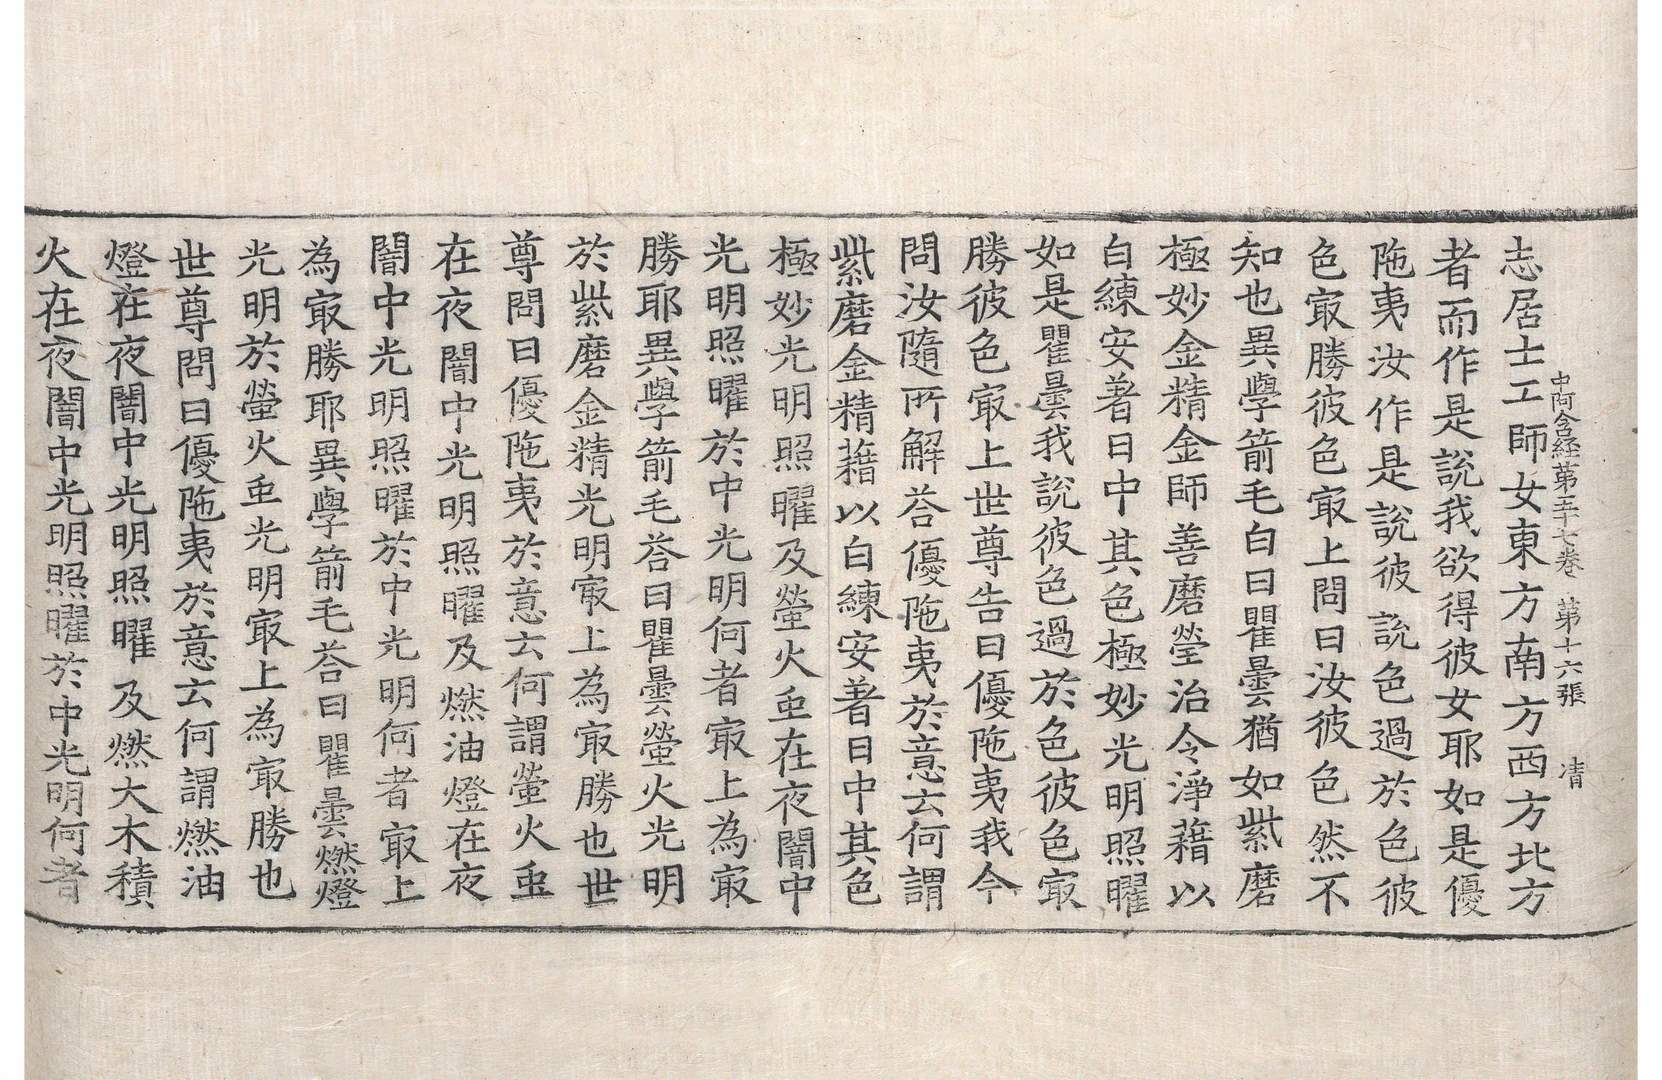 中阿含経第五十七卷　第十六張　凊
志居士工師女東方南方西方北方
者而作是說我欲得彼女耶如是優
陁夷汝作是說彼說色過於色彼
色㝡勝彼色㝡上問曰汝彼色然不
知也異學箭毛白曰瞿曇猶如紫磨
極妙金精金師善磨瑩治令淨藉以
白練安著日中其色極妙光明照曜
如是瞿曇我說彼色過於色彼色㝡
勝彼色㝡上世尊告曰優陁夷我今
問汝隨所解荅優陁夷於意云何謂
紫磨金精藉以白練安著日中其色
極妙光明照曜及螢火䖝在夜闇中
光明照曜於中光明何者㝡上為㝡
勝耶異學箭毛荅曰瞿曇螢火光明
於紫磨金精光明㝡上為㝡勝也世
尊問曰優陁夷於意云何謂螢火䖝
在夜闇中光明照曜及燃油燈在夜
闇中光明照曜於中光明何者㝡上
為㝡勝耶異學箭毛荅曰瞿曇燃燈
光明於螢火䖝光明㝡上為㝡勝也
世尊問曰優陁夷於意云何謂燃油
燈在夜闇中光明照曜及燃大木積
火在夜闇中光明照曜於中光明何者